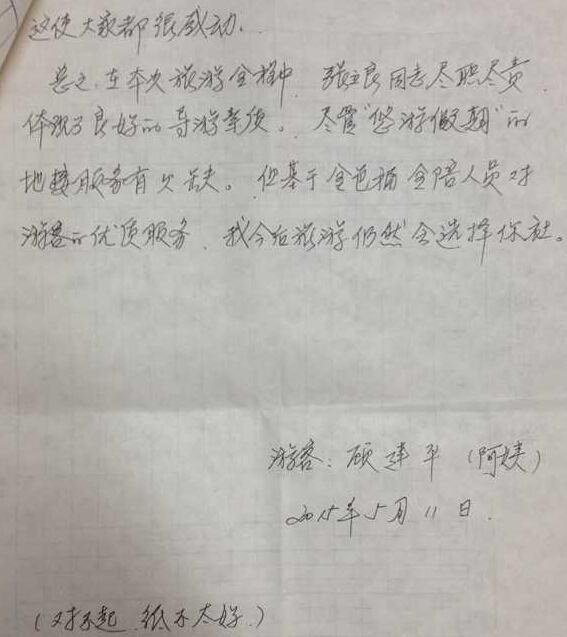 这使大家都很感动.
总之,在本次旅游全程中 张立良同志尽职尽责.
体现了良好的导游素质。尽管"悠游假期"的
地接服务有欠缺。但基于金色扬全陪人员对
游客的优质服务.我今后旅游仍然会选择你社。
游客:顾建平(阿姨)
2015年5月11日.
(对不起 纸不太好.)